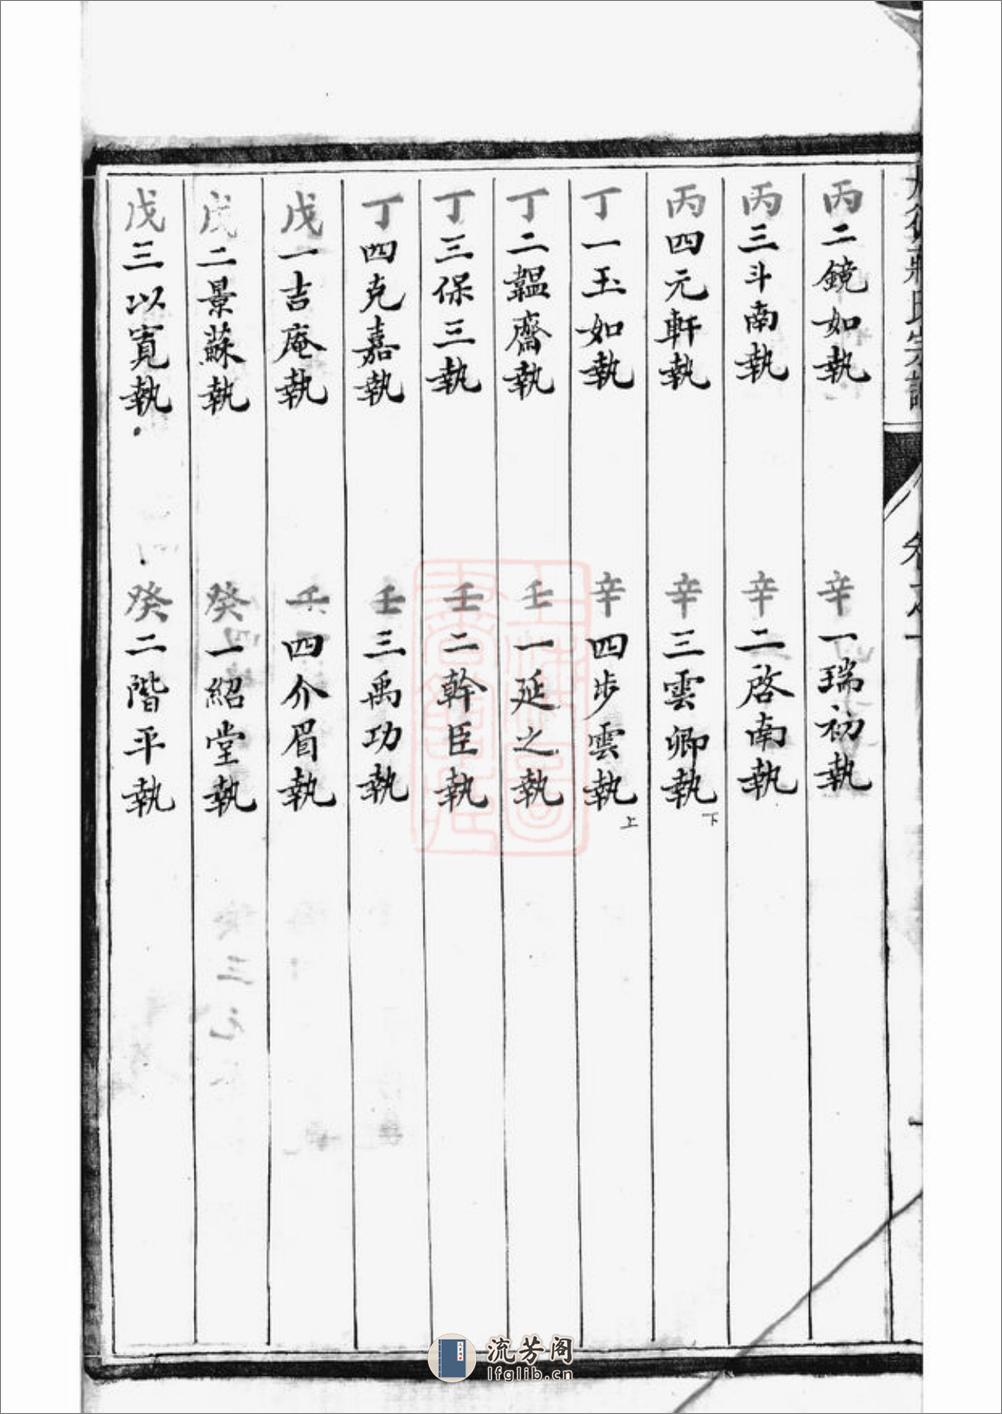 丙二鏡如執 辛一瑞初執
丙三斗南執 辛二啓南執
丙四元軒執 辛三雲卿執下
丁一玉如執 辛四步雲執上
丁二韞齋執 壬一延之執
丁三保三執 壬二幹臣執
丁四克嘉執 壬三禹功執
戊一吉庵執 壬四介眉執
戊二景蘇執 癸一紹堂執
戊三以寬執 癸二階平執
流芳阁
lfglib.cn